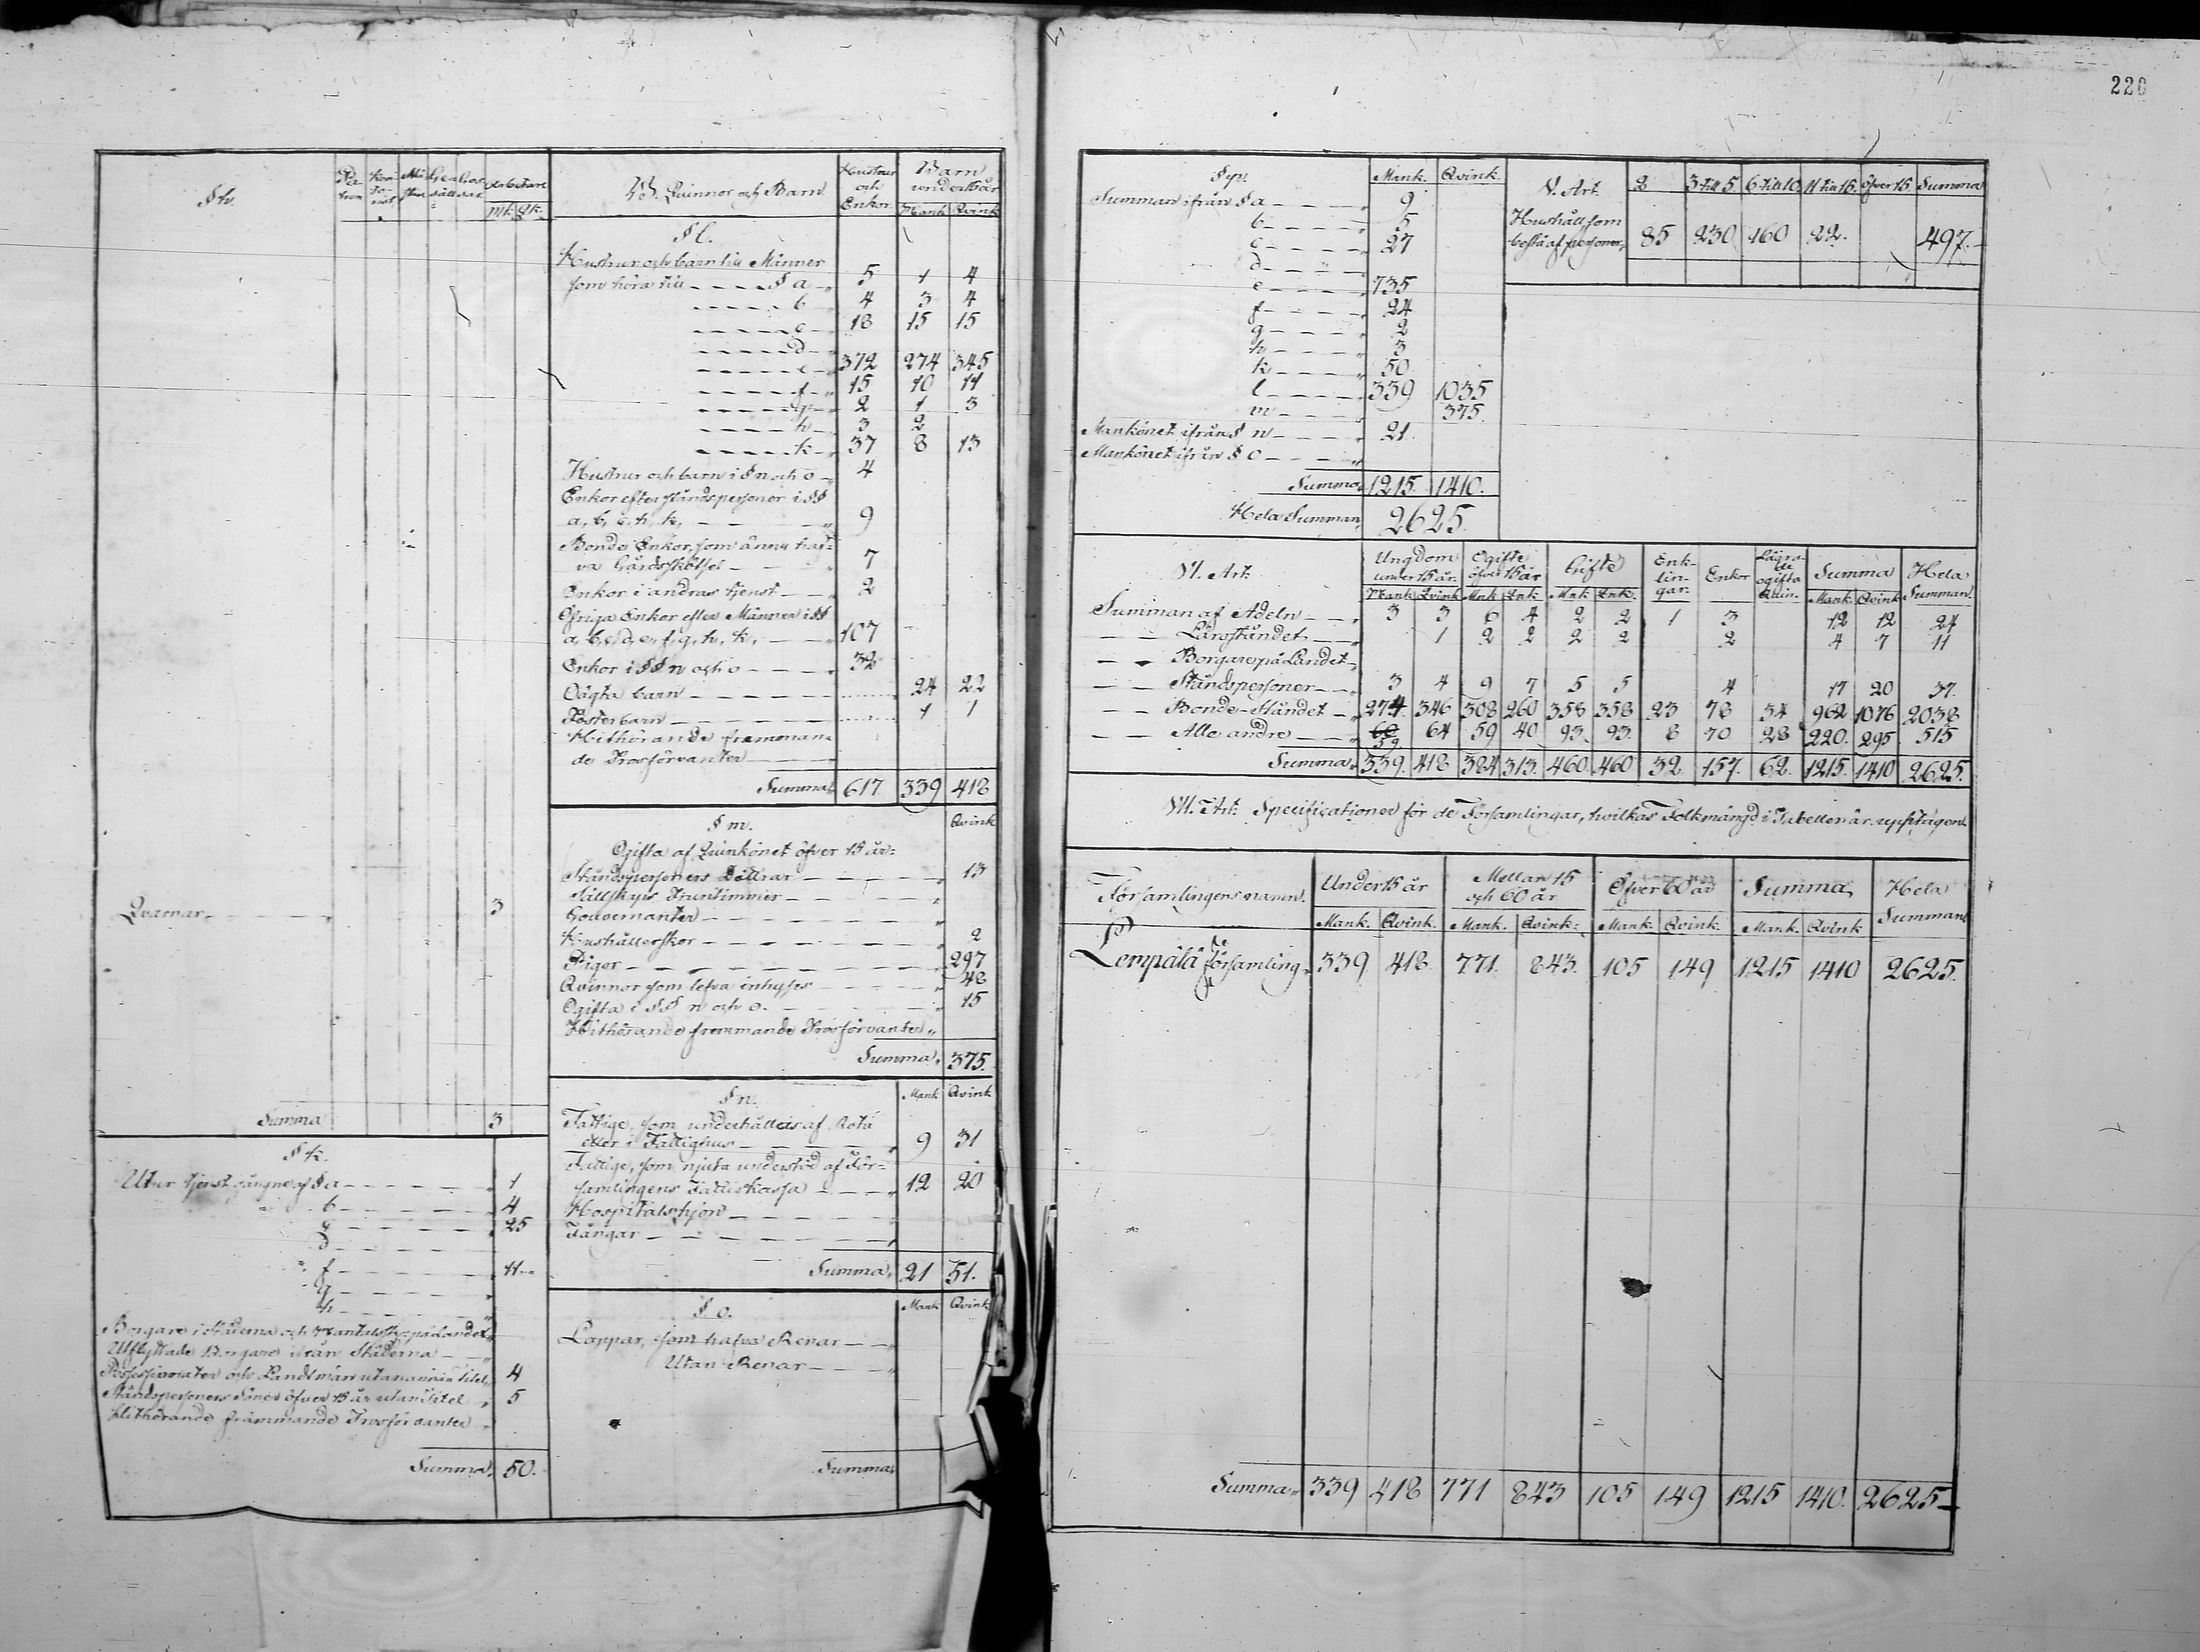 220
§ h.
Pa- tron
Kon- to- rist
Mä- stra
Ge- säll
Gos- sar
Arbetare
Mk. Qk.
Qvarnar 3
Summa 3
§ k.
Utur tjenst gångne af § a 1
b 4
c 25
d
f 11
g
h
Borgare i Städerna och på Landet
Utflyttade Borgare ifrån Städerna
Possessionater och Landtmän utan annan titel 4
Ståndspersoners Söner öfver 15 år utan titel 5
Hithörande främmande Trosförvanter
Summa 50.
Qvinnor och Barn
Hustrur och Enkor
Barn under 15 år
Mank Qvink
§ l.
Hustrur och barn till Männer
som höra till § a 5 1 4
b 4 3 4
c 18 15 15
d
e 372 274 345
f 15 10 11
g 2 1 3
h 3 2
k 37 8 13
Hustrur och barn i § n och o 4
Enkor efter ståndspersoner i §§
a, b, c, h, k, 9
Bonde Enkor, som ännu haf-
va Gårdsskötsel 7
Enkor i andras tjenst 2
Öfriga Enkor efter Männer i §§
a, b, c, d, e, f, g, h, k, 107
Enkor i §§ n och o 32
Oägta barn 24 22
Fosterbarn 1 1
Hithörande fremman-
de Trosförvanter
Summa 617 339 418
§ m.
Qvink
Ogifta af Qvinkönet öfver 15 år:
Ståndspersoners Döttrar 13
Sällskaps Fruntimmer
Gouvernanter
Hushållerskor 2
Pigor 297
Qvinnor som lefva inhyses 48
Ogifta i §§ n och o. 15
Hithörande fremmande Trosförvanter
Summa 375.
§ n.
Mank Qvink
Fattige, som underhålles af Rota
eller i Fattighus 9 31
Fattige, som njuta understöd af För-
samlingens Fattigkassa 12 20
Hospitalshjon
Fångar
Summa 21 51.
§ o.
Mank Qvink
Lappar, som hafva Renar
Utan Renar
Summa
§ p.
Mank. Qvink.
Summan ifrån § a 9
b 5
c 27
d
e 735
f 24
g 2
h 3
k 50
l 339 1035
m 375.
Mankönet ifrån § n 21.
Mankönet ifrån § o
Summa 1215. 1410.
Hela Summan 2625.
V. Art. 2 3 till 5 6 till 10 11 till 15. öfver 15 Summa
Hushåll som
bestå af personer 85 230 160 22. 497.
VI. Art.
Ungdom under 15 år. Ogifte öfver 15 år Gifte Enk- lin- gar. Enkor Lägra- de ogifta Qvin. Summa Hela Summan.
Mank. Qvink Mnk Qnk Mnk Qnk. Mank. Qvink
Summan af Adeln 3 3 6 4 2 2 1 3 12 12 24
Lärostandet 1 2 2 2 2 2 4 7 11
Borgare på Landet
Ståndspersoner 3 4 9 7 5 5 4 17 20 37.
Bonde-Ståndet 274 346 308 260 358 358 23 78 34 962 1076 2038
Alla andre 60 59. 64 59 40 93. 93. 8 70 28 220. 295 515
Summa 339. 418 384 313. 460 460 32 157. 62. 1215. 1410 2625.
VII. Art. Specificationer för de Församlingar, hvilkas Folkmängd i Tabellen är upptagen.
Församlingens namn. Under 15 år Mellan 15 och 60 år Öfver 60 år Summa Hela Summan
Mank. Qvink. Mank. Qvink. Mank. Qvink. Mank. Qvink
Lempälä församling 339 418. 771. 843. 105 149 1215 1410 2625.
Summa 339 418 771 843 105 149 1215 1410. 2625